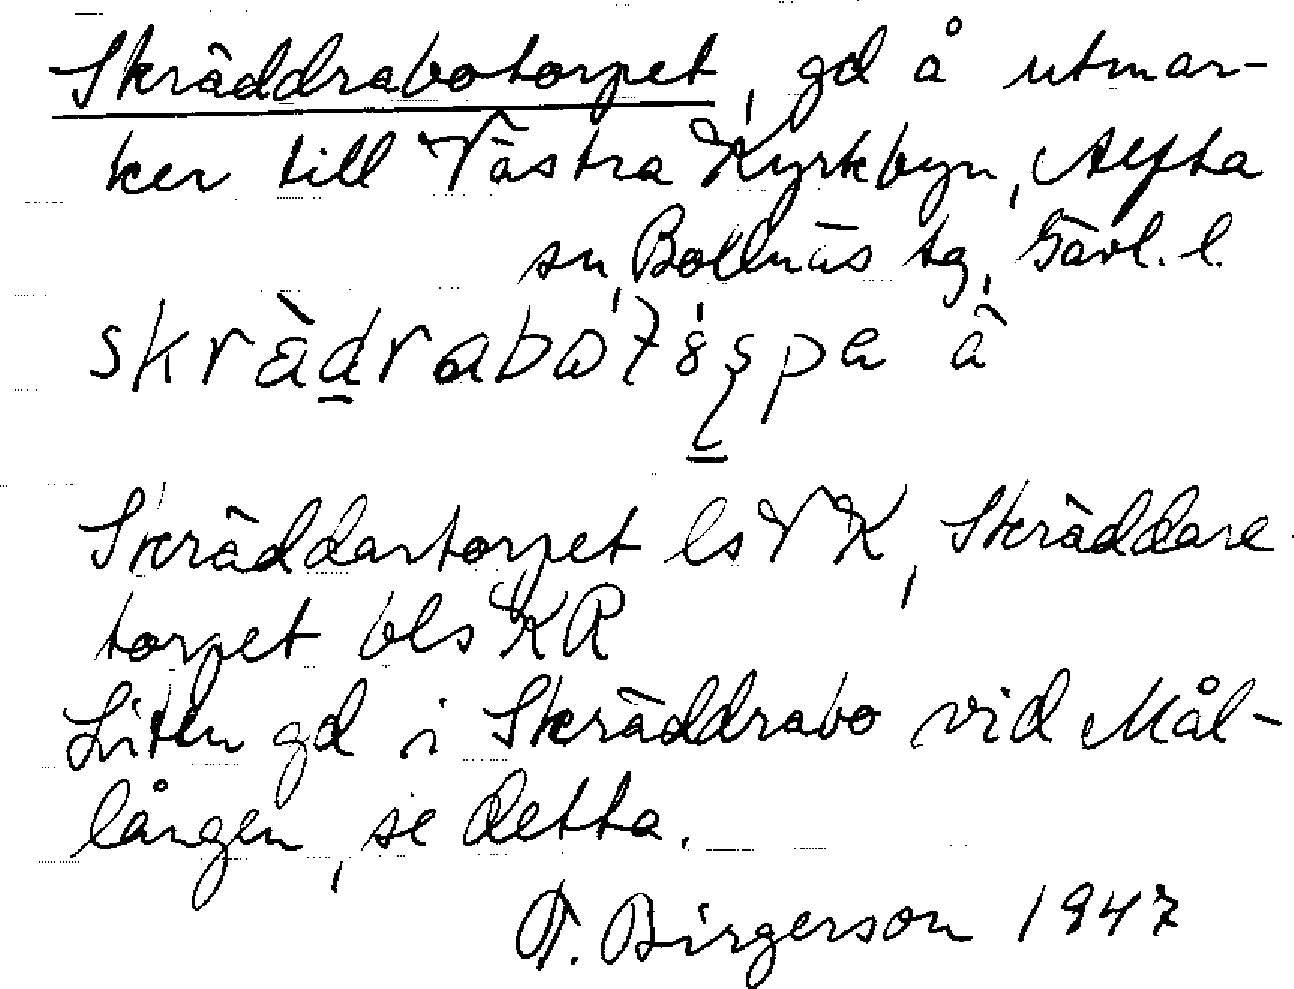 Skräddrabotorpet, gd å utmar-
ker till Västra Kyrkbyn, Alfta
sn, Bollnäs tg, Gävl. l.
Skräddartorpet ls VK, Skräddare
torpet bls KR
Liten gd i Skräddrabo vid Mål-
lången, se detta.
F. Birgerson 1947